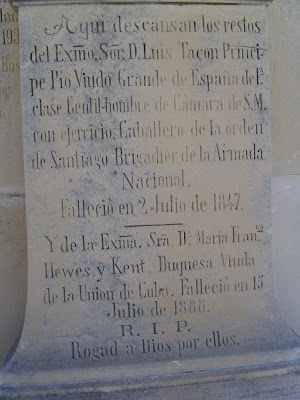 Aqui descansan los restos
del Exmo. Sor. D. Luis Tacon Princi-
pe Pio Viudo Grande de España de 1ª
clase Gentil-hombre de Cámara de S.M.
con ejercicio, Caballero de la órden
de Santiago Brigadier de la Armada
Nacional.
Falleció en 2 Julio de 1847.
Y de la Exma. Sra. Dª Maria Franca
Hewes y Kent, Duquesa Viuda
de la Union de Cuba. Falleció en 15
Julio de 1888.
R. I. P.
Rogad a Dios por ellos.
193